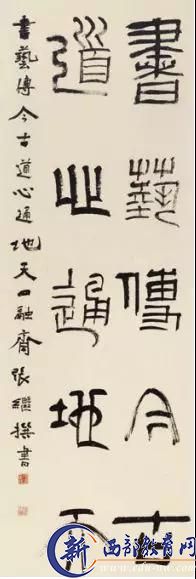 書藝傳今古
道心通地天
書藝傳今古道心通地天四融齋張繼撰書
新 西部教育网